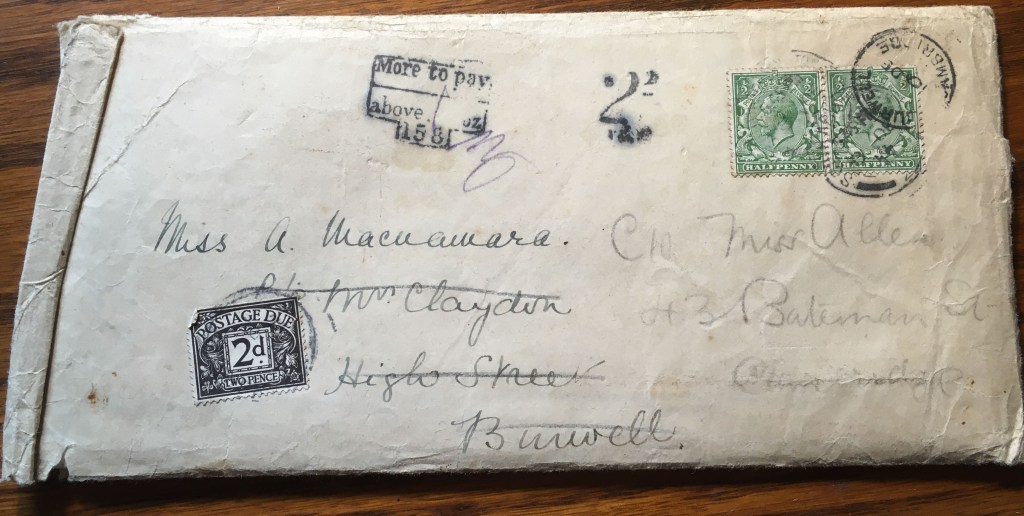 More to pay
above oz
158
2d
HALFPENNY
HALFPENNY
Miss A. Macnamara.
C/o Mrs Claydon
High Street
Burwell.
C/o Miss Allen
43 Bateman St
Cambridge
POSTAGE DUE
2d
TWO PENCE